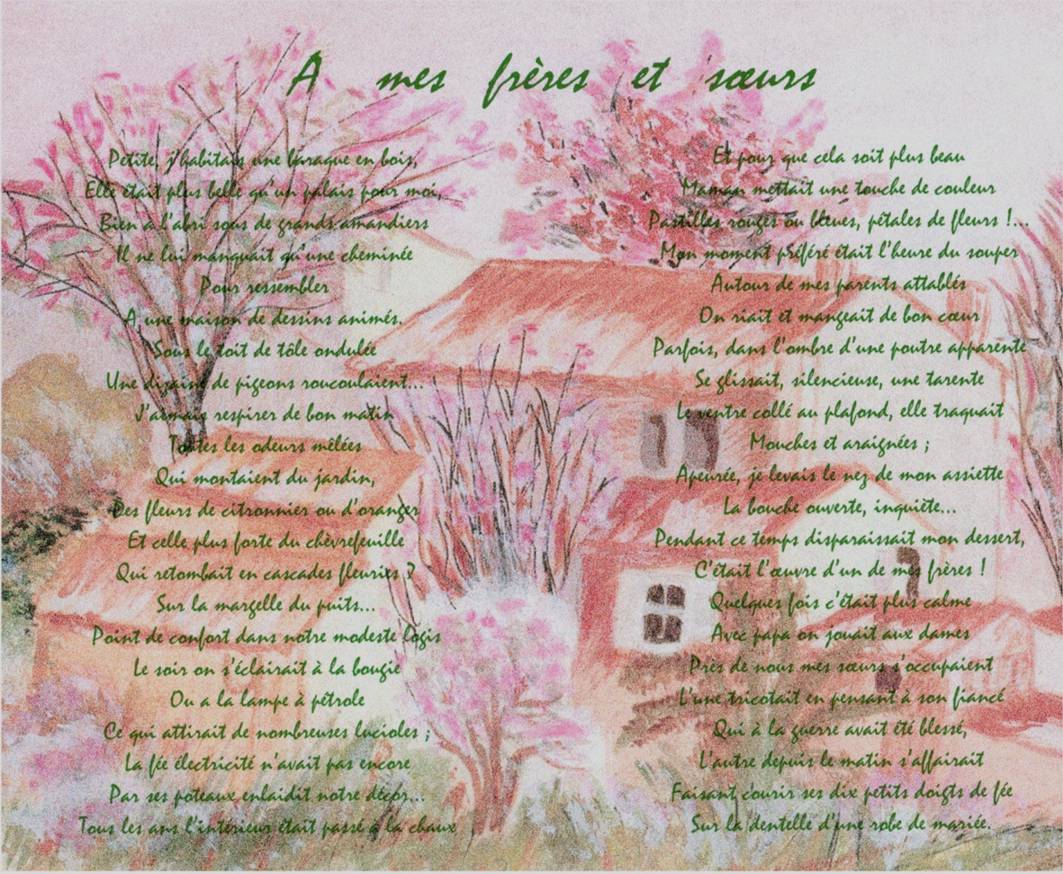 A mes frères et sœurs
Petite, j'habitais une baraque en bois,
Elle était plus belle qu'un palais pour moi,
Bien a l'abri sous de grands amandiers
Il ne lui manquait qu'une cheminée
Pour ressembler
A une maison de dessins animés.
Sous le toit de tôle ondulée
Une dizaine de pigeons roucoulaient...
J'aimais respirer de bon matin
Toutes les odeurs mêlées
Qui montaient du jardin,
Des fleurs de citronnier ou d'oranger
Et celle plus forte du chèvrefeuille
Qui retombait en cascades fleuries ?
Sur la margelle du puits...
Point de confort dans notre modeste logis
Le soir on s'éclairait à la bougie
Ou a la lampe à pétrole
Ce qui attirait de nombreuses lucioles ;
La fée électricité n'avait pas encore
Par ses poteaux enlaidit notre décor...
Tous les ans l'intérieur était passé à la chaux
Et pour que cela soit plus beau
Maman mettait une touche de couleur
Pastilles rouges ou bleues, pétales de fleurs !...
Mon moment préféré était l'heure du souper
Autour de mes parents attablés
On riait et mangeait de bon cœur
Parfois, dans l'ombre d'une poutre apparente
Se glissait, silencieuse, une tarente
Le ventre collé au plafond, elle traquait
Mouches et araignées ;
Apeurée, je levais le nez de mon assiette
La bouche ouverte, inquiète...
Pendant ce temps disparaissait mon dessert,
C'était l'œuvre d'un de mes frères !
Quelques fois c'était plus calme
Avec papa on jouait aux dames
Près de nous mes sœurs s'occupaient
L'une tricotait en pensant à son fiancé
Qui à la guerre avait été blessé,
L'autre depuis le matin s'affairait
Faisant courir ses dix petits doigts de fée
Sur la dentelle d'une robe de mariée.